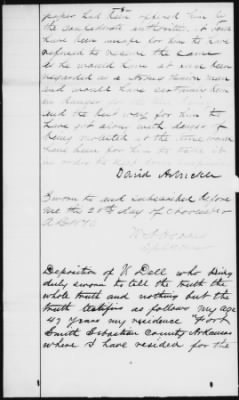 5
paper had been offered him by
the Confederate authorities. It would
have been unsafe for him to have
refused to receive the same
as he would have at once been
regarded as a strong Union man
and would have
in danger
and the best way for him to
have got along with danger of
being molested at the time would
have been for him to take it
in order to
David Arbuckle
Sworn to and subscribed before
me the 28th day of November
AD 1870
Deposition of W Dell who being
duly sworn to tell the truth the
whole truth and nothing but the
truth testifies as follows my age
43 years my residence "Fort
Smith Sebastian County Arkansas
where I have resided for the